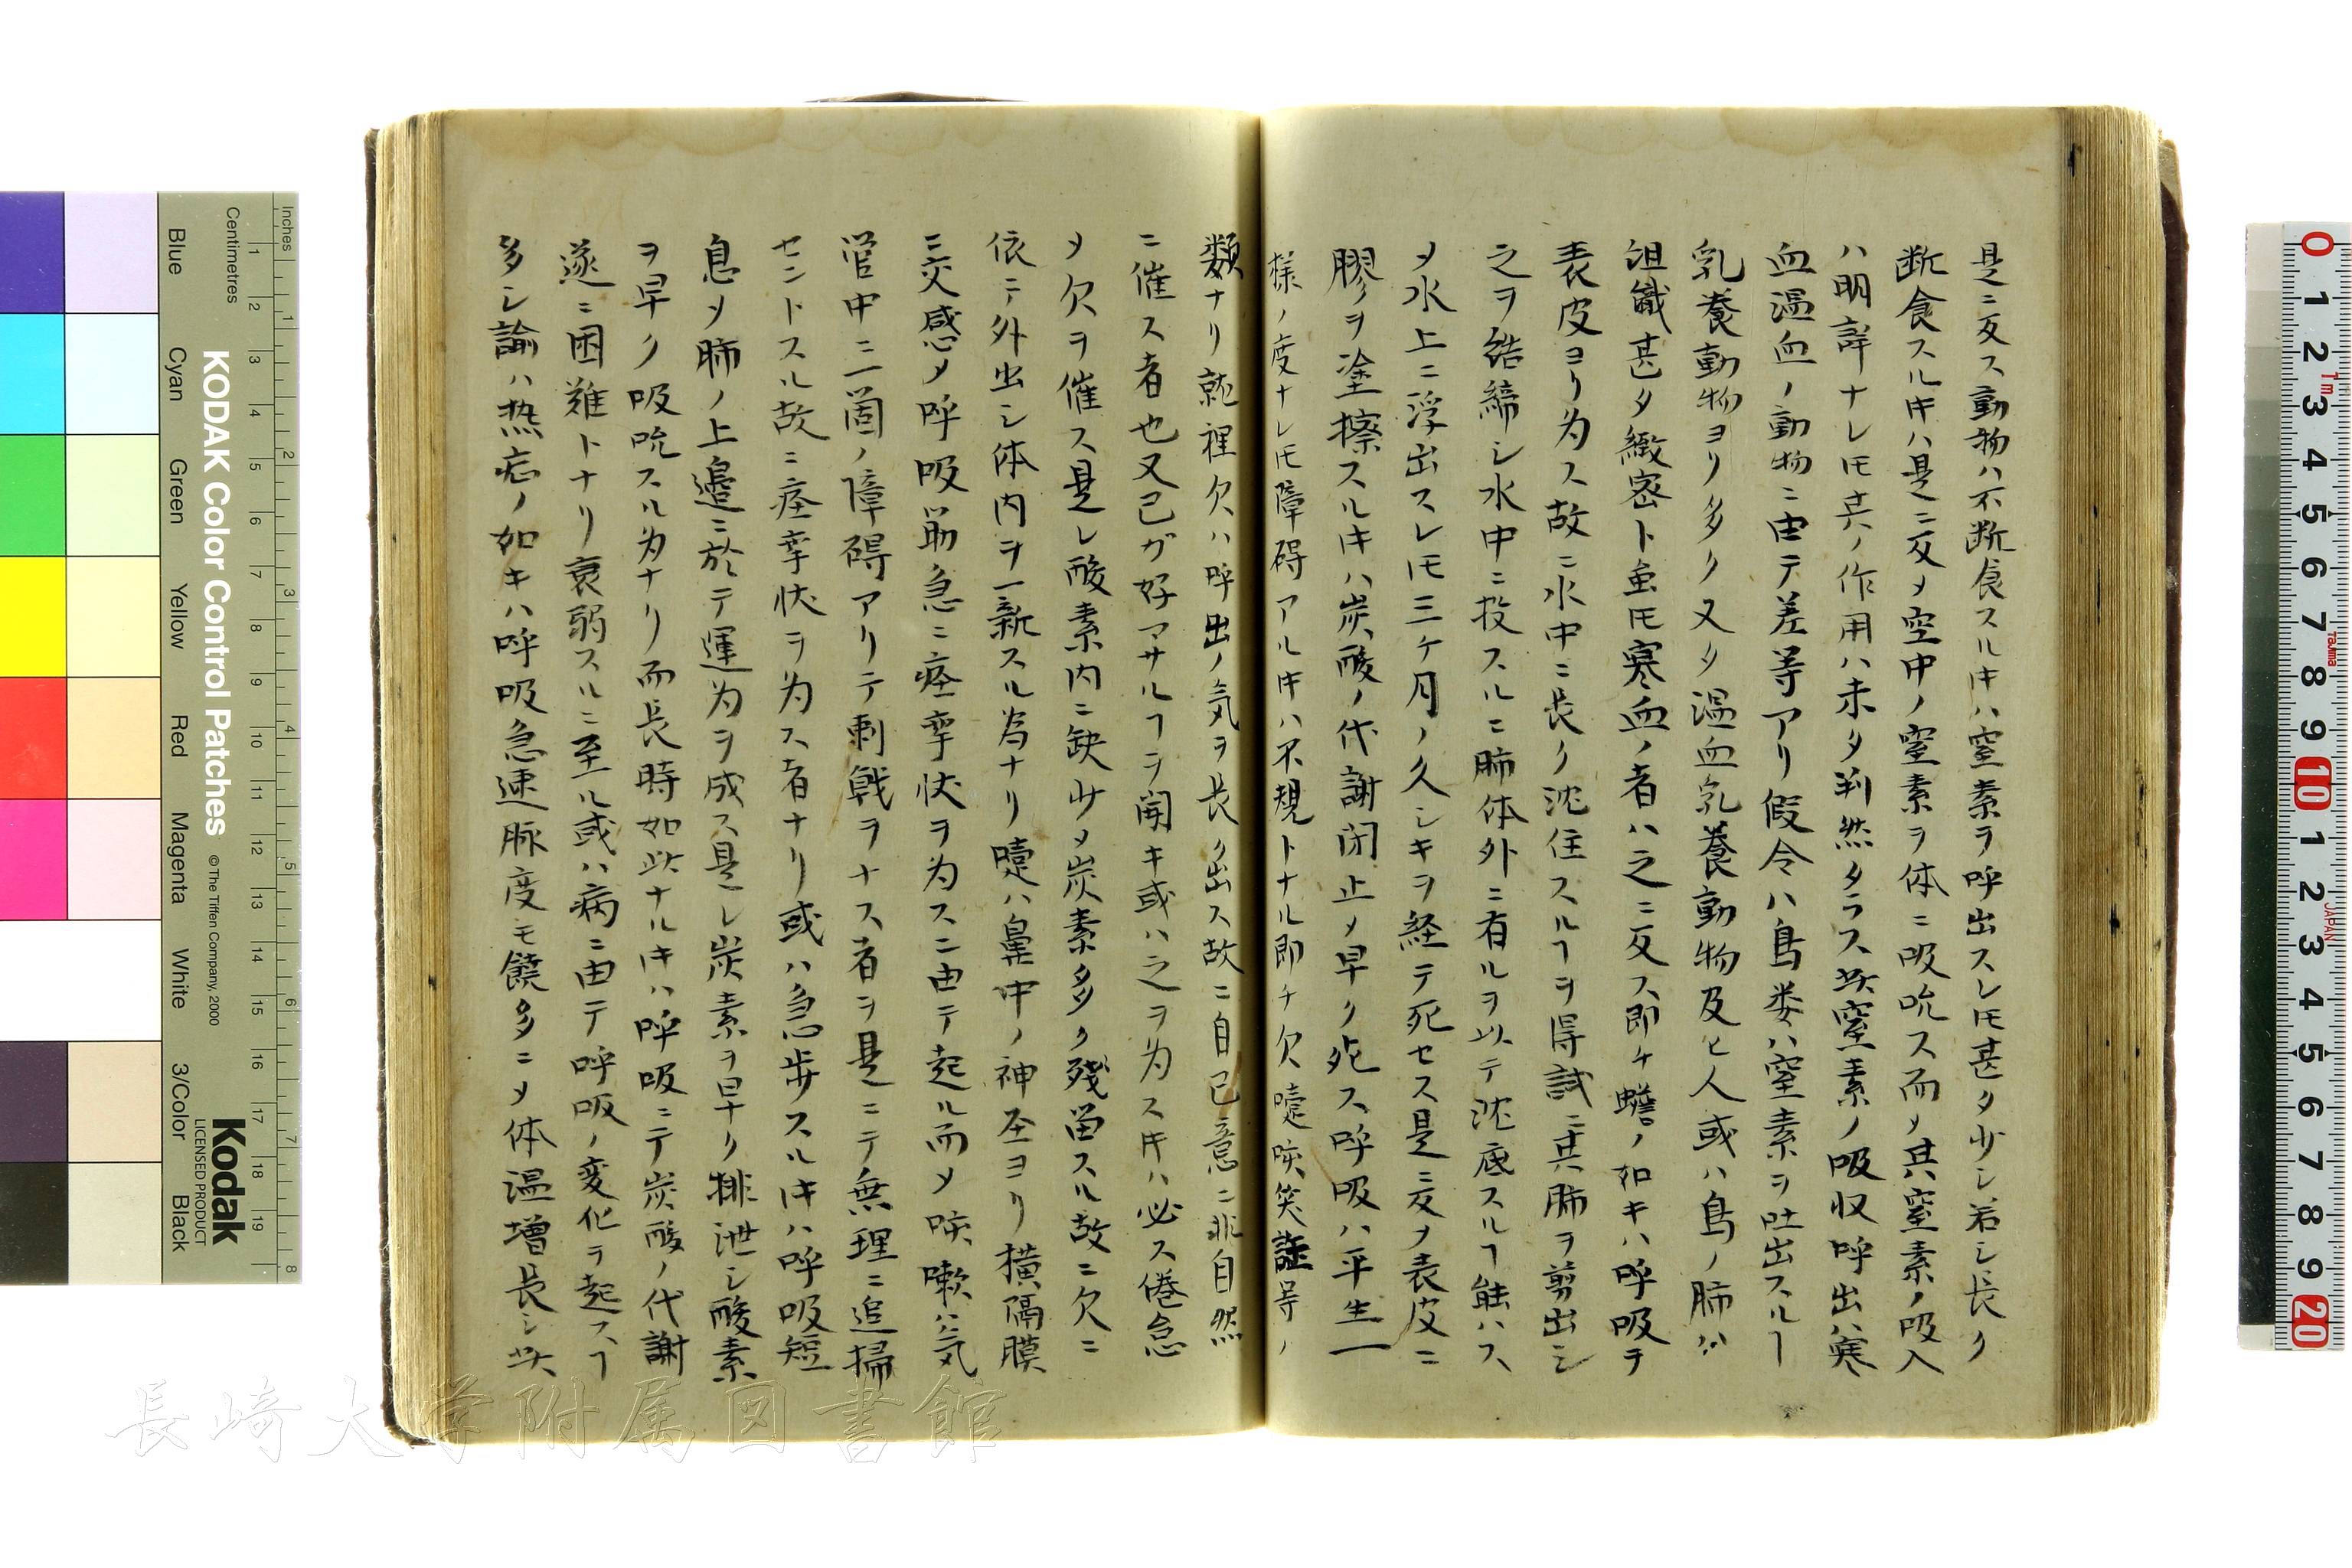 是ニ反ス動物ハ不断食スル𪜈ハ窒素ヲ呼出スレ𪜈甚タ少シ若シ長ク
断食スル寸ハ是ニ反メ空中ノ窒素ヲ体ニ吸吮ス而メ其窒素ノ吸入
ハ明詳ナレ𪜈其ノ作用ハ未タ判然タラス此窒素ノ吸収呼出ハ寒
血温血ノ動物ニ由テ差等アリ假令ハ鳥娄ハ窒素ヲ吐出スルヿ
乳養動物ヨリ多ク又タ温血乳養動物及ヒ人或ハ鳥ノ肺ハ
沮織甚タ緻密ト虽𪜈寒血ノ者ハ之ニ反ス即チ蟾ノ如キハ呼吸ヲ
表皮ヨリ為ス故ニ水中ニ長ク沈住スルヿヲ得試ニ其肺ヲ剪出シ
之ヲ結締シ水中ニ投スルニ肺体外ニ有ルヲ以テ沈底スルヿ能ハス
メ水上ニ浮出スレ𪜈三ケ月ノ久シキヲ経テ死セス是ニ反メ表皮ニ
膠ヲ塗擦スル寸ハ炭酸ノ代謝閉止メ早ク死ス呼吸ハ平生一
様ノ度ナレ𪜈障碍アル寸ハ不規トナル即チ欠嚏咳笑等ノ
類ナリ就裡欠ハ呼出ノ気ヲ長ク出ス故ニ自己ノ意ニ非自然
ニ催ス者也又己ガ好マサルヿヲ聞キ或ハ之ヲ為ス寸ハ必ス倦怠
メ欠ヲ催ス是レ酸素内ニ缺少メ炭素多ク残留スル故ニ欠ニ
依テ外出シ体内ヲ一新スル為ナリ嚏ハ鼻中ノ神圣ヨリ横隔膜
ニ交感メ呼吸筋急ニ痙挛状ヲ為スニ由テ起ル而メ咳嗽ハ気
管中ニ一箇ノ障碍アリテ刺戟ヲナス者ヲ是ニテ無理ニ追掃
セントスル故ニ痙挛状ヲ為ス者ナリ或ハ急歩スル寸ハ呼吸短
息メ肺ノ上邉ニ於テ運為ヲ成ス是レ炭素ヲ早ク排泄シ酸素
ヲ早ク吸吮スル為ナリ而長時如此ナル寸ハ呼吸ニテ炭酸ノ代謝
遂ニ困難トナリ衰弱スルニ至ル或ハ病ニ由テ呼吸ノ変化ヲ起スヿ
多シ諭ハ热症ノ如キハ呼吸急速脈度モ饒多ニメ体温増長シ此
Inches
Centimetres
KODAK Color Control Patches
© The Tiffen Company, 2000
Kodak
LICENSED PRODUCT
Blue
Cyan
Green
Yellow
Red
Magenta
White
3/Color
Black
長崎大学附属図書館